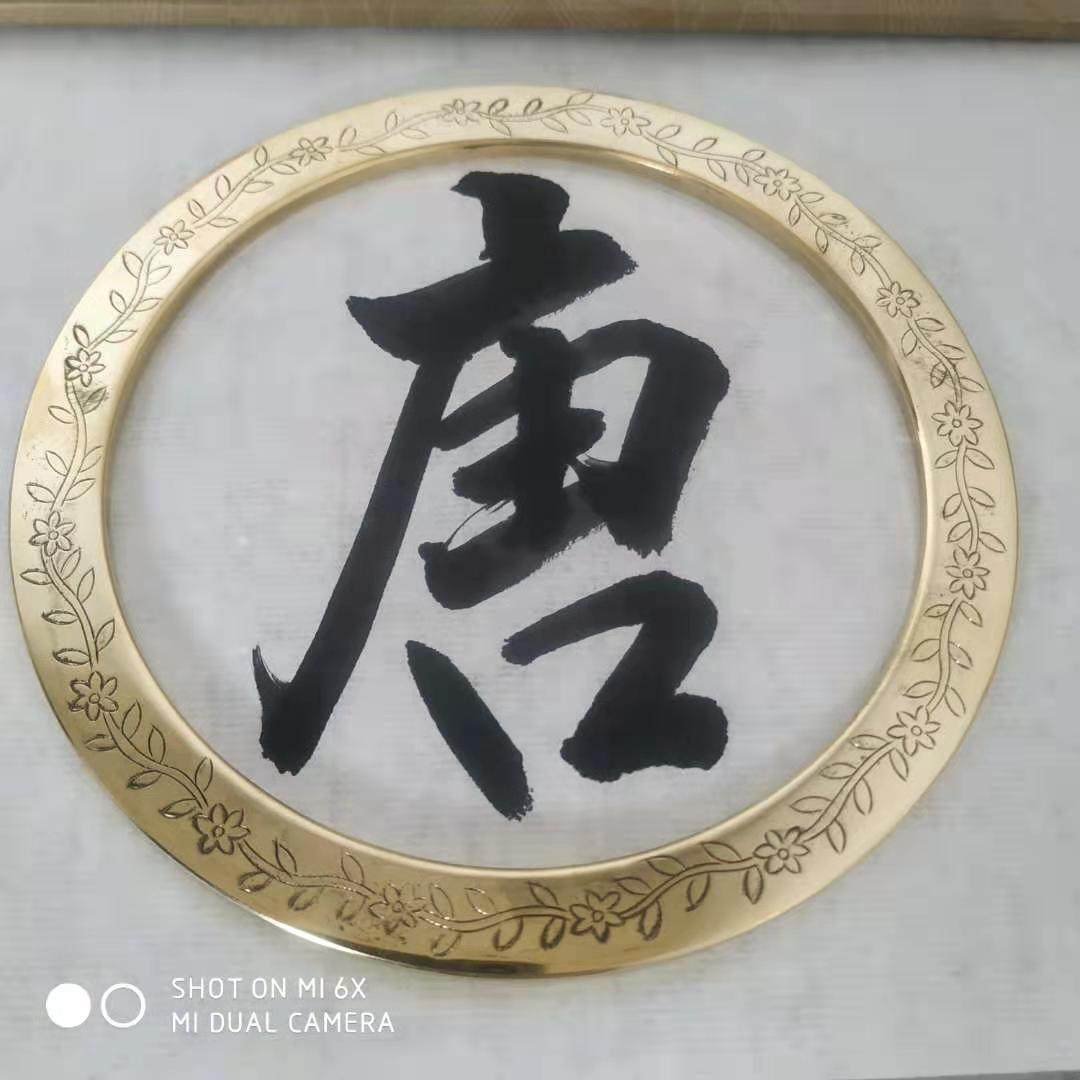 唐
SHOT ON MI 6X
MI DUAL CAMERA